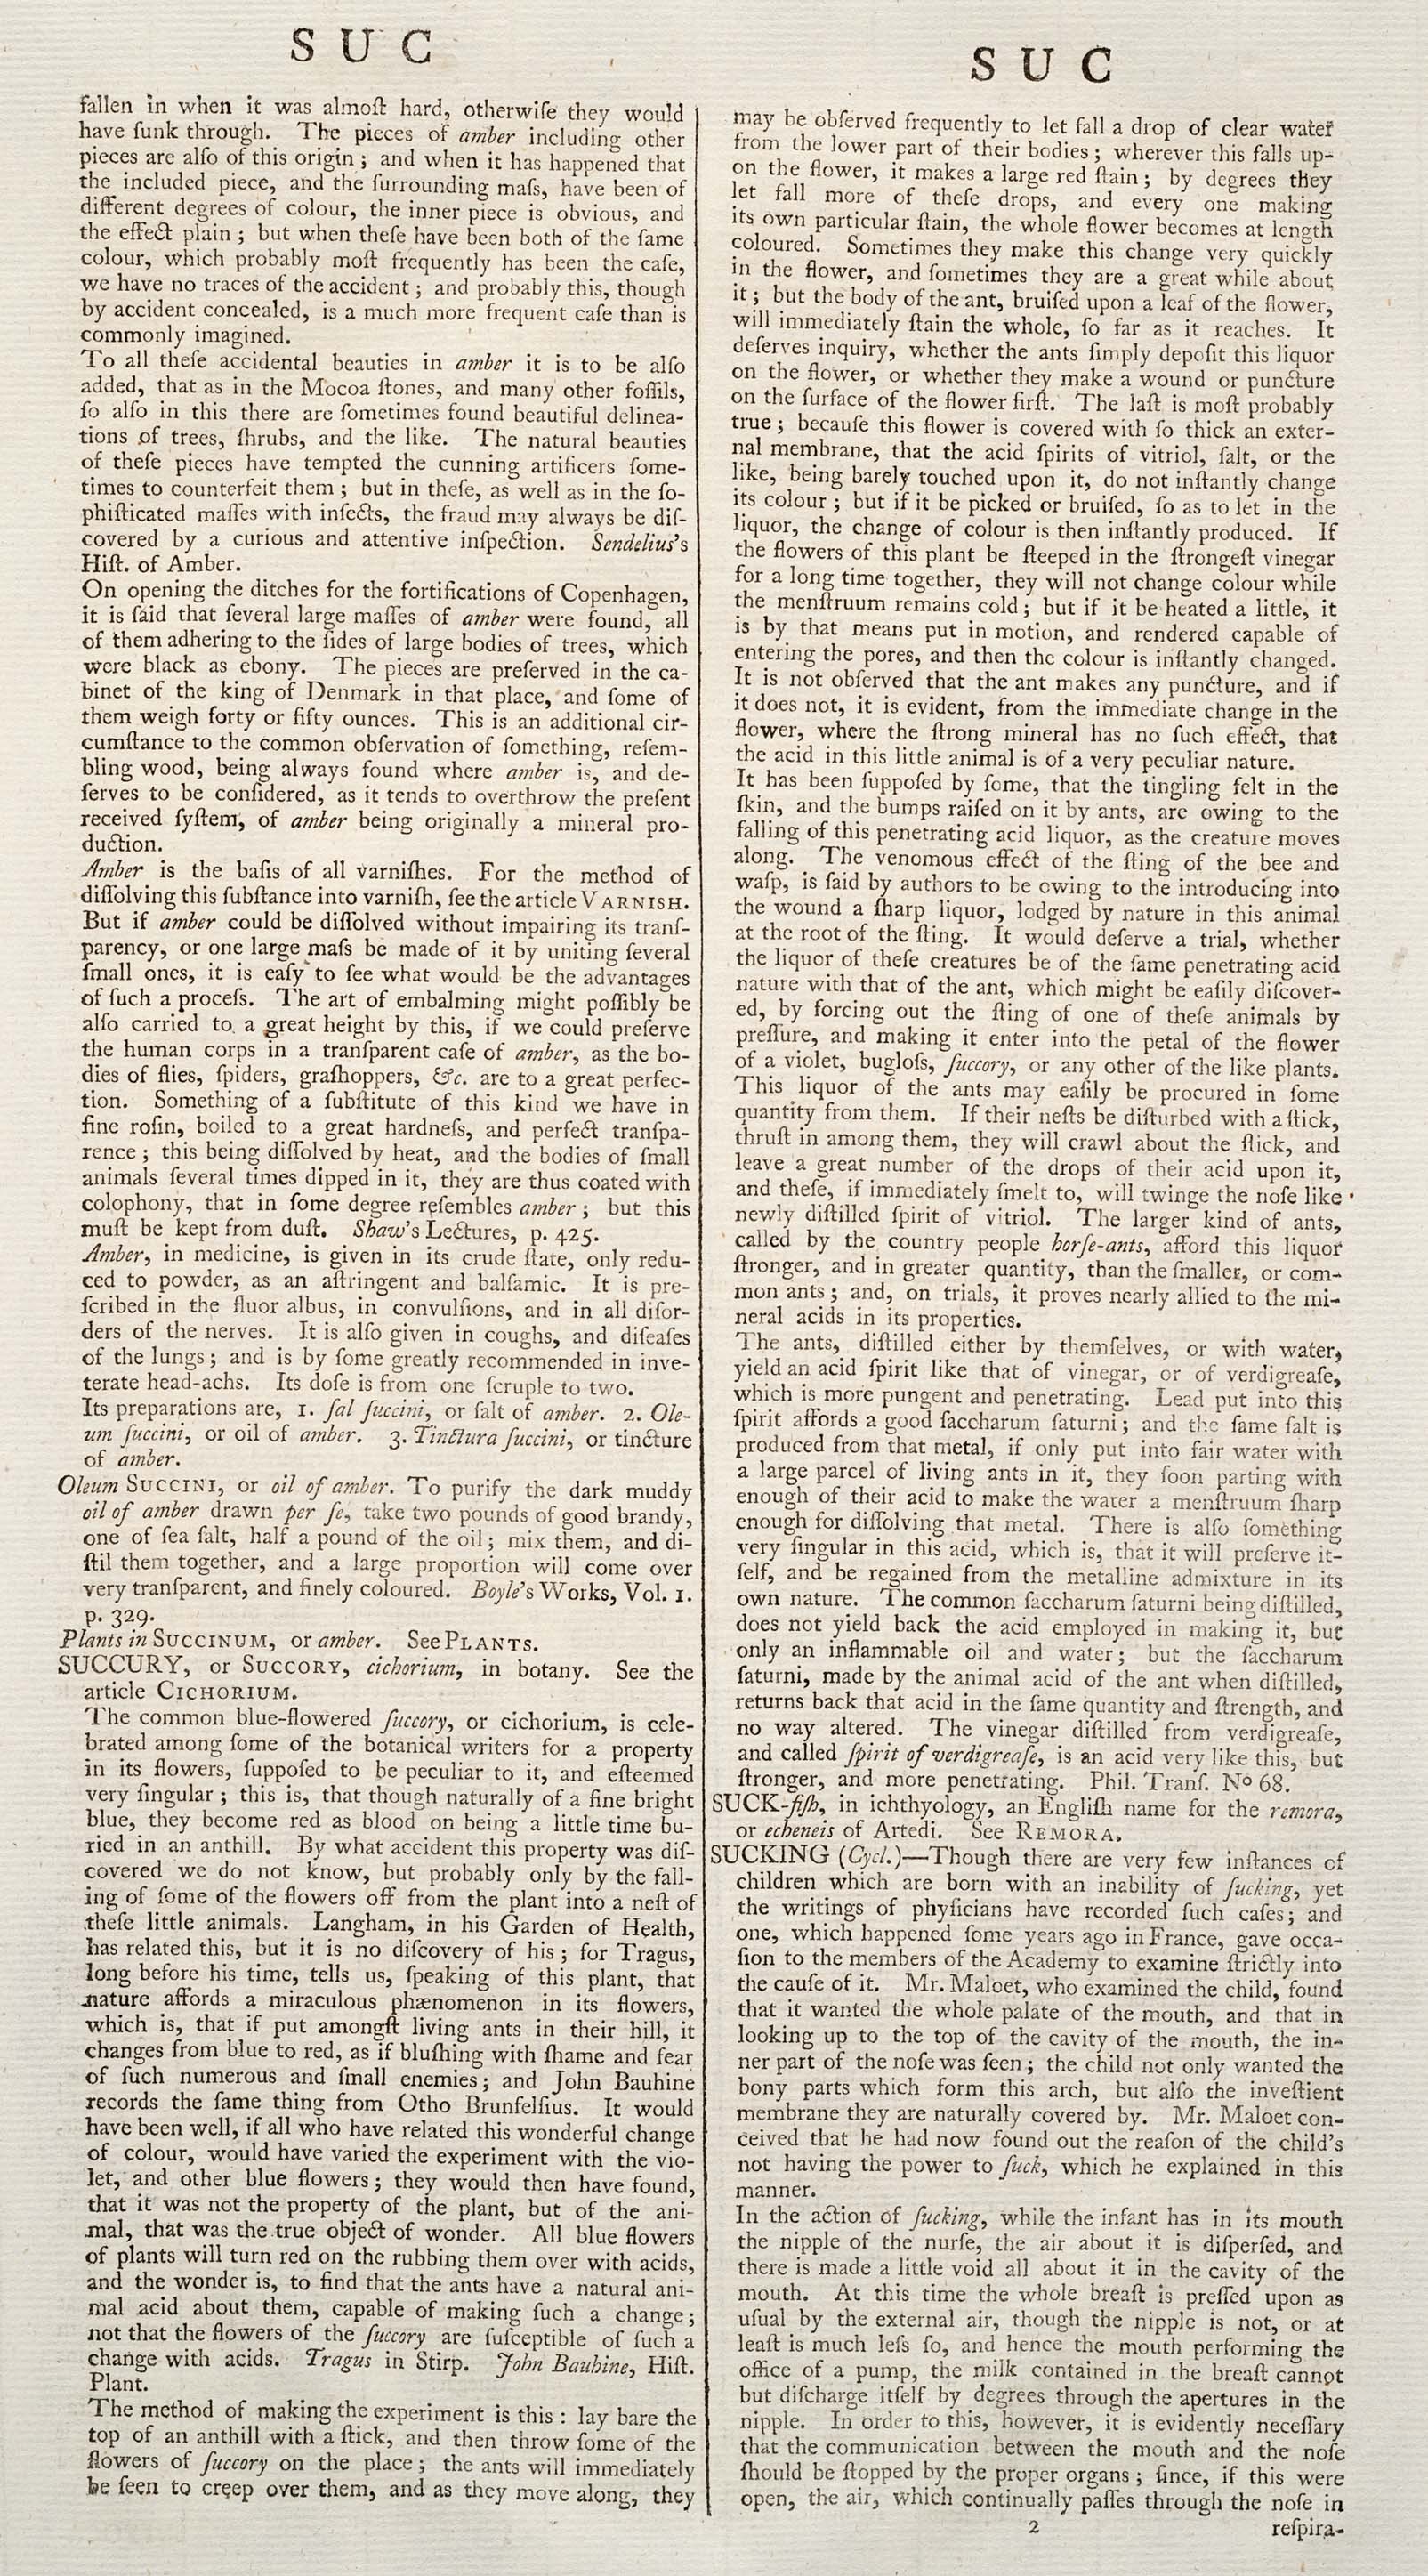 S U C
fallen in when it was almoſt hard, otherwiſe they would
have ſunk through. The pieces of amber including other
pieces are alſo of this origin; and when it has happened that
the included piece, and the ſurrounding maſs, have been of
different degrees of colour, the inner piece is obvious, and
the effect plain; but when theſe have been both of the ſame
colour, which probably moſt frequently has been the caſe,
we have no traces of the accident; and probably this, though
by accident concealed, is a much more frequent caſe than is
commonly imagined.
To all theſe accidental beauties in amber it is to be alſo
added, that as in the Mocoa ſtones, and many other foſſils,
ſo alſo in this there are ſometimes found beautiful delinea-
tions of trees, ſhrubs, and the like. The natural beauties
of theſe pieces have tempted the cunning artificers ſome-
times to counterfeit them; but in theſe, as well as in the ſo-
phiſticated maſſes with inſects, the fraud may always be diſ-
covered by a curious and attentive inſpection. Sendelius's
Hiſt. of Amber.
On opening the ditches for the fortifications of Copenhagen,
it is ſaid that ſeveral large maſſes of amber were found, all
of them adhering to the ſides of large bodies of trees, which
were black as ebony. The pieces are preſerved in the ca-
binet of the king of Denmark in that place, and ſome of
them weigh forty or fifty ounces. This is an additional cir-
cumſtance to the common obſervation of ſomething, reſem-
bling wood, being always found where amber is, and de-
ſerves to be conſidered, as it tends to overthrow the preſent
received ſyſtem, of amber being originally a mineral pro-
duction.
Amber is the baſis of all varniſhes. For the method of
diſſolving this ſubſtance into varniſh, ſee the article VARNISH.
But if amber could be diſſolved without impairing its tranſ-
parency, or one large maſs be made of it by uniting ſeveral
ſmall ones, it is eaſy to ſee what would be the advantages
of ſuch a proceſs. The art of embalming might poſſibly be
alſo carried to a great height by this, if we could preſerve
the human corps in a tranſparent caſe of amber, as the bo-
dies of flies, ſpiders, graſhoppers, &c. are to a great perfec-
tion. Something of a ſubſtitute of this kind we have in
fine roſin, boiled to a great hardneſs, and perfect tranſpa-
rence; this being diſſolved by heat, and the bodies of ſmall
animals ſeveral times dipped in it, they are thus coated with
colophony, that in ſome degree reſembles amber; but this
muſt be kept from duſt. Shaw's Lectures, p. 425.
Amber, in medicine, is given in its crude ſtate, only redu-
ced to powder, as an aſtringent and balſamic. It is pre-
ſcribed in the fluor albus, in convulſions, and in all diſor-
ders of the nerves. It is alſo given in coughs, and diſeaſes
of the lungs; and is by ſome greatly recommended in inve-
terate head-achs. Its doſe is from one ſcruple to two.
Its preparations are, 1. ſal ſuccini, or ſalt of amber. 2. Ole-
um ſuccini, or oil of amber. 3. Tinctura ſuccini, or tincture
of amber.
Oleum SUCCINI, or oil of amber. To purify the dark muddy
oil of amber drawn per ſe, take two pounds of good brandy,
one of ſea ſalt, half a pound of the oil; mix them, and di-
ſtil them together, and a large proportion will come over
very tranſparent, and finely coloured. Boyle's Works, Vol. 1.
p. 329.
Plants in SUCCINUM, or amber. See PLANTS.
SUCCURY, or SUCCORY, cichorium, in botany. See the
article CICHORIUM.
The common blue-flowered ſuccory, or cichorium, is cele-
brated among ſome of the botanical writers for a property
in its flowers, ſuppoſed to be peculiar to it, and eſteemed
very ſingular; this is, that though naturally of a fine bright
blue, they become red as blood on being a little time bu-
ried in an anthill. By what accident this property was diſ-
covered we do not know, but probably only by the fall-
ing of ſome of the flowers off from the plant into a neſt of
theſe little animals. Langham, in his Garden of Health,
has related this, but it is no diſcovery of his; for Tragus,
long before his time, tells us, ſpeaking of this plant, that
nature affords a miraculous phænomenon in its flowers,
which is, that if put amongſt living ants in their hill, it
changes from blue to red, as if bluſhing with ſhame and fear
of ſuch numerous and ſmall enemies; and John Bauhine
records the ſame thing from Otho Brunfelſius. It would
have been well, if all who have related this wonderful change
of colour, would have varied the experiment with the vio-
let, and other blue flowers; they would then have found,
that it was not the property of the plant, but of the ani-
mal, that was the true object of wonder. All blue flowers
of plants will turn red on the rubbing them over with acids,
and the wonder is, to find that the ants have a natural ani-
mal acid about them, capable of making ſuch a change;
not that the flowers of the ſuccory are ſuſceptible of ſuch a
change with acids. Tragus in Stirp. John Bauhine, Hiſt.
Plant.
The method of making the experiment is this: lay bare the
top of an anthill with a ſtick, and then throw ſome of the
flowers of ſuccory on the place; the ants will immediately
be ſeen to creep over them, and as they move along, they
S U C
may be obſerved frequently to let fall a drop of clear water
from the lower part of their bodies; wherever this falls up-
on the flower, it makes a large red ſtain; by degrees they
let fall more of theſe drops, and every one making
its own particular ſtain, the whole flower becomes at length
coloured. Sometimes they make this change very quickly
in the flower, and ſometimes they are a great while about
it; but the body of the ant, bruiſed upon a leaf of the flower,
will immediately ſtain the whole, ſo far as it reaches. It
deſerves inquiry, whether the ants ſimply depoſit this liquor
on the flower, or whether they make a wound or puncture
on the ſurface of the flower firſt. The laſt is moſt probably
true; becauſe this flower is covered with ſo thick an exter-
nal membrane, that the acid ſpirits of vitriol, ſalt, or the
like, being barely touched upon it, do not inſtantly change
its colour; but if it be picked or bruiſed, ſo as to let in the
liquor, the change of colour is then inſtantly produced. If
the flowers of this plant be ſteeped in the ſtrongeſt vinegar
for a long time together, they will not change colour while
the menſtruum remains cold; but if it be heated a little, it
is by that means put in motion, and rendered capable of
entering the pores, and then the colour is inſtantly changed.
It is not obſerved that the ant makes any puncture, and if
it does not, it is evident, from the immediate change in the
flower, where the ſtrong mineral has no ſuch effect, that
the acid in this little animal is of a very peculiar nature.
It has been ſuppoſed by ſome, that the tingling felt in the
ſkin, and the bumps raiſed on it by ants, are owing to the
falling of this penetrating acid liquor, as the creature moves
along. The venomous effect of the ſting of the bee and
waſp, is ſaid by authors to be owing to the introducing into
the wound a ſharp liquor, lodged by nature in this animal
at the root of the ſting. It would deſerve a trial, whether
the liquor of theſe creatures be of the ſame penetrating acid
nature with that of the ant, which might be eaſily diſcover-
ed, by forcing out the ſting of one of theſe animals by
preſſure, and making it enter into the petal of the flower
of a violet, bugloſs, ſuccory, or any other of the like plants.
This liquor of the ants may eaſily be procured in ſome
quantity from them. If their neſts be diſturbed with a ſtick,
thruſt in among them, they will crawl about the ſtick, and
leave a great number of the drops of their acid upon it,
and theſe, if immediately ſmelt to, will twinge the noſe like
newly diſtilled ſpirit of vitriol. The larger kind of ants,
called by the country people horſe-ants, afford this liquor
ſtronger, and in greater quantity, than the ſmaller, or com-
mon ants; and, on trials, it proves nearly allied to the mi-
neral acids in its properties.
The ants, diſtilled either by themſelves, or with water,
yield an acid ſpirit like that of vinegar, or of verdigreaſe,
which is more pungent and penetrating. Lead put into this
ſpirit affords a good ſaccharum ſaturni; and the ſame ſalt is
produced from that metal, if only put into fair water with
a large parcel of living ants in it, they ſoon parting with
enough of their acid to make the water a menſtruum ſharp
enough for diſſolving that metal. There is alſo ſomething
very ſingular in this acid, which is, that it will preſerve it-
ſelf, and be regained from the metalline admixture in its
own nature. The common ſaccharum ſaturni being diſtilled,
does not yield back the acid employed in making it, but
only an inflammable oil and water; but the ſaccharum
ſaturni, made by the animal acid of the ant when diſtilled,
returns back that acid in the ſame quantity and ſtrength, and
no way altered. The vinegar diſtilled from verdigreaſe,
and called ſpirit of verdigreaſe, is an acid very like this, but
ſtronger, and more penetrating. Phil. Tranſ. Nº 68.
SUCK-fiſh, in ichthyology, an Engliſh name for the remora,
or echeneis of Artedi. See REMORA.
SUCKING (Cycl.)—Though there are very few inſtances of
children which are born with an inability of ſucking, yet
the writings of phyſicians have recorded ſuch caſes; and
one, which happened ſome years ago in France, gave occa-
ſion to the members of the Academy to examine ſtrictly into
the cauſe of it. Mr. Maloet, who examined the child, found
that it wanted the whole palate of the mouth, and that in
looking up to the top of the cavity of the mouth, the in-
ner part of the noſe was ſeen; the child not only wanted the
bony parts which form this arch, but alſo the inveſtient
membrane they are naturally covered by. Mr. Maloet con-
ceived that he had now found out the reaſon of the child's
not having the power to ſuck, which he explained in this
manner.
In the action of ſucking, while the infant has in its mouth
the nipple of the nurſe, the air about it is diſperſed, and
there is made a little void all about it in the cavity of the
mouth. At this time the whole breaſt is preſſed upon as
uſual by the external air, though the nipple is not, or at
leaſt is much leſs ſo, and hence the mouth performing the
office of a pump, the milk contained in the breaſt cannot
but diſcharge itſelf by degrees through the apertures in the
nipple. In order to this, however, it is evidently neceſſary
that the communication between the mouth and the noſe
ſhould be ſtopped by the proper organs; ſince, if this were
open, the air, which continually paſſes through the noſe in
2
reſpira-